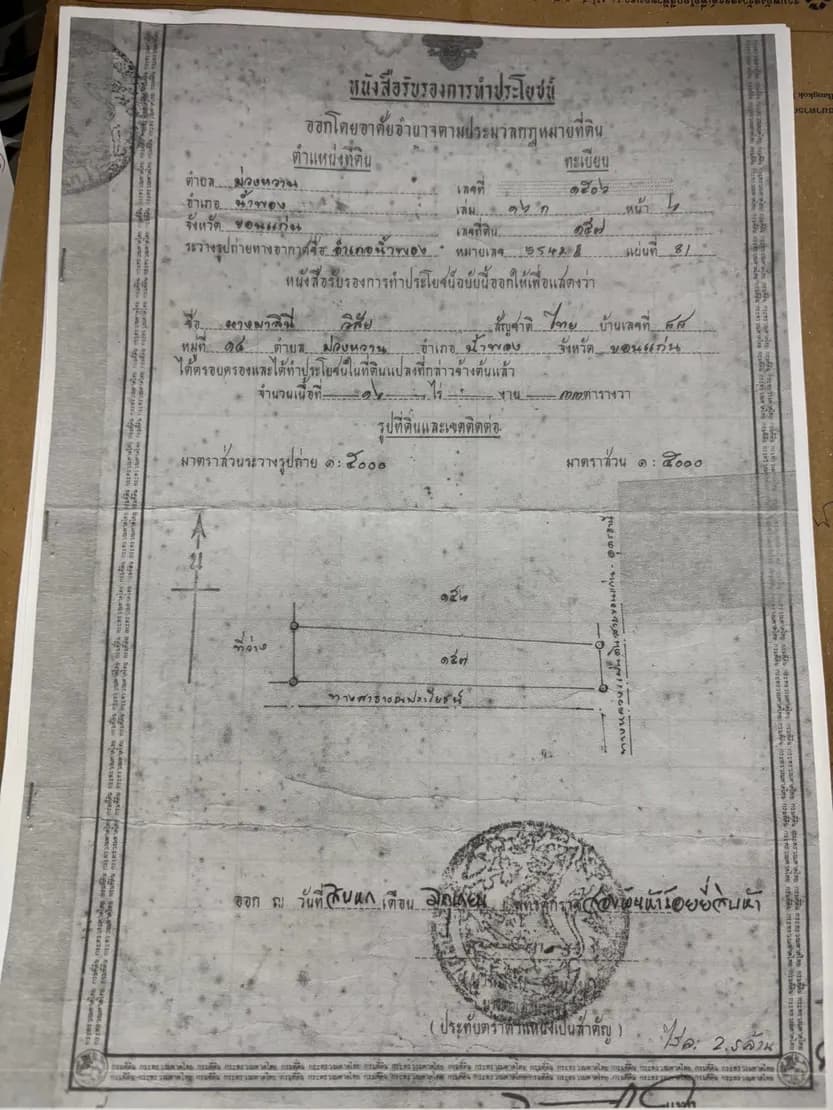 หนังสือรับรองการทำประโยชน์
ออกโดยอาศัยอำนาจตามประมวลกฎหมายที่ดิน
ตำแหน่งที่ดิน ทะเบียน
ตำบล ม่วงหวาน เลขที่ ๑๕๐๖
อำเภอ น้ำพอง เล่ม ๑๖ ก หน้า ๖
จังหวัด ขอนแก่น เลขที่ดิน ๑๕๗
ระวางรูปถ่ายทางอากาศชื่อ อำเภอน้ำพอง หมายเลข 5542 II แผ่นที่ 81
หนังสือรับรองการทำประโยชน์ฉบับนี้ออกให้เพื่อแสดงว่า
ชื่อ วิสัย สัญชาติ ไทย บ้านเลขที่ ๕๕
หมู่ที่ ๑๔ ตำบล ม่วงหวาน อำเภอ น้ำพอง จังหวัด ขอนแก่น
ได้ครอบครองและได้ทำประโยชน์ในที่ดินแปลงที่กล่าวข้างต้นแล้ว
จำนวนเนื้อที่ ๑๖ ไร่ - งาน ๓๓ ตารางวา
รูปที่ดินและเขตติดต่อ
มาตราส่วนระวางรูปถ่าย ๑ : ๕๐๐๐ มาตราส่วน ๑ : ๕๐๐๐
น
๑๕๖
ที่ว่าง
๑๕๗
ทางสาธารณประโยชน์
ทางหลวงแผ่นดินสายขอนแก่น - อุดรธานี
ออก ณ วันที่ สิบหก เดือน มิถุนายน พุทธศักราช สองพันห้าร้อยยี่สิบห้า
(ประทับตราตำแหน่งเป็นสำคัญ)
ไร่ละ 2.5 ล้าน
กรมที่ดิน กระทรวงมหาดไทย